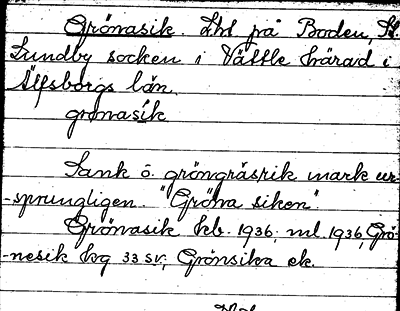 Grönasik. Lht på Boden, St.
Lundby socken i Vättle härad i
Älfsborgs län.
grönasik
Sank o. gröngräsrik mark ur-
-sprungligen. "Gröna siken".
Grönasik kb. 1936, ml. 1936, Grö-
-nesik hg 33 sv; Grönsika ek.